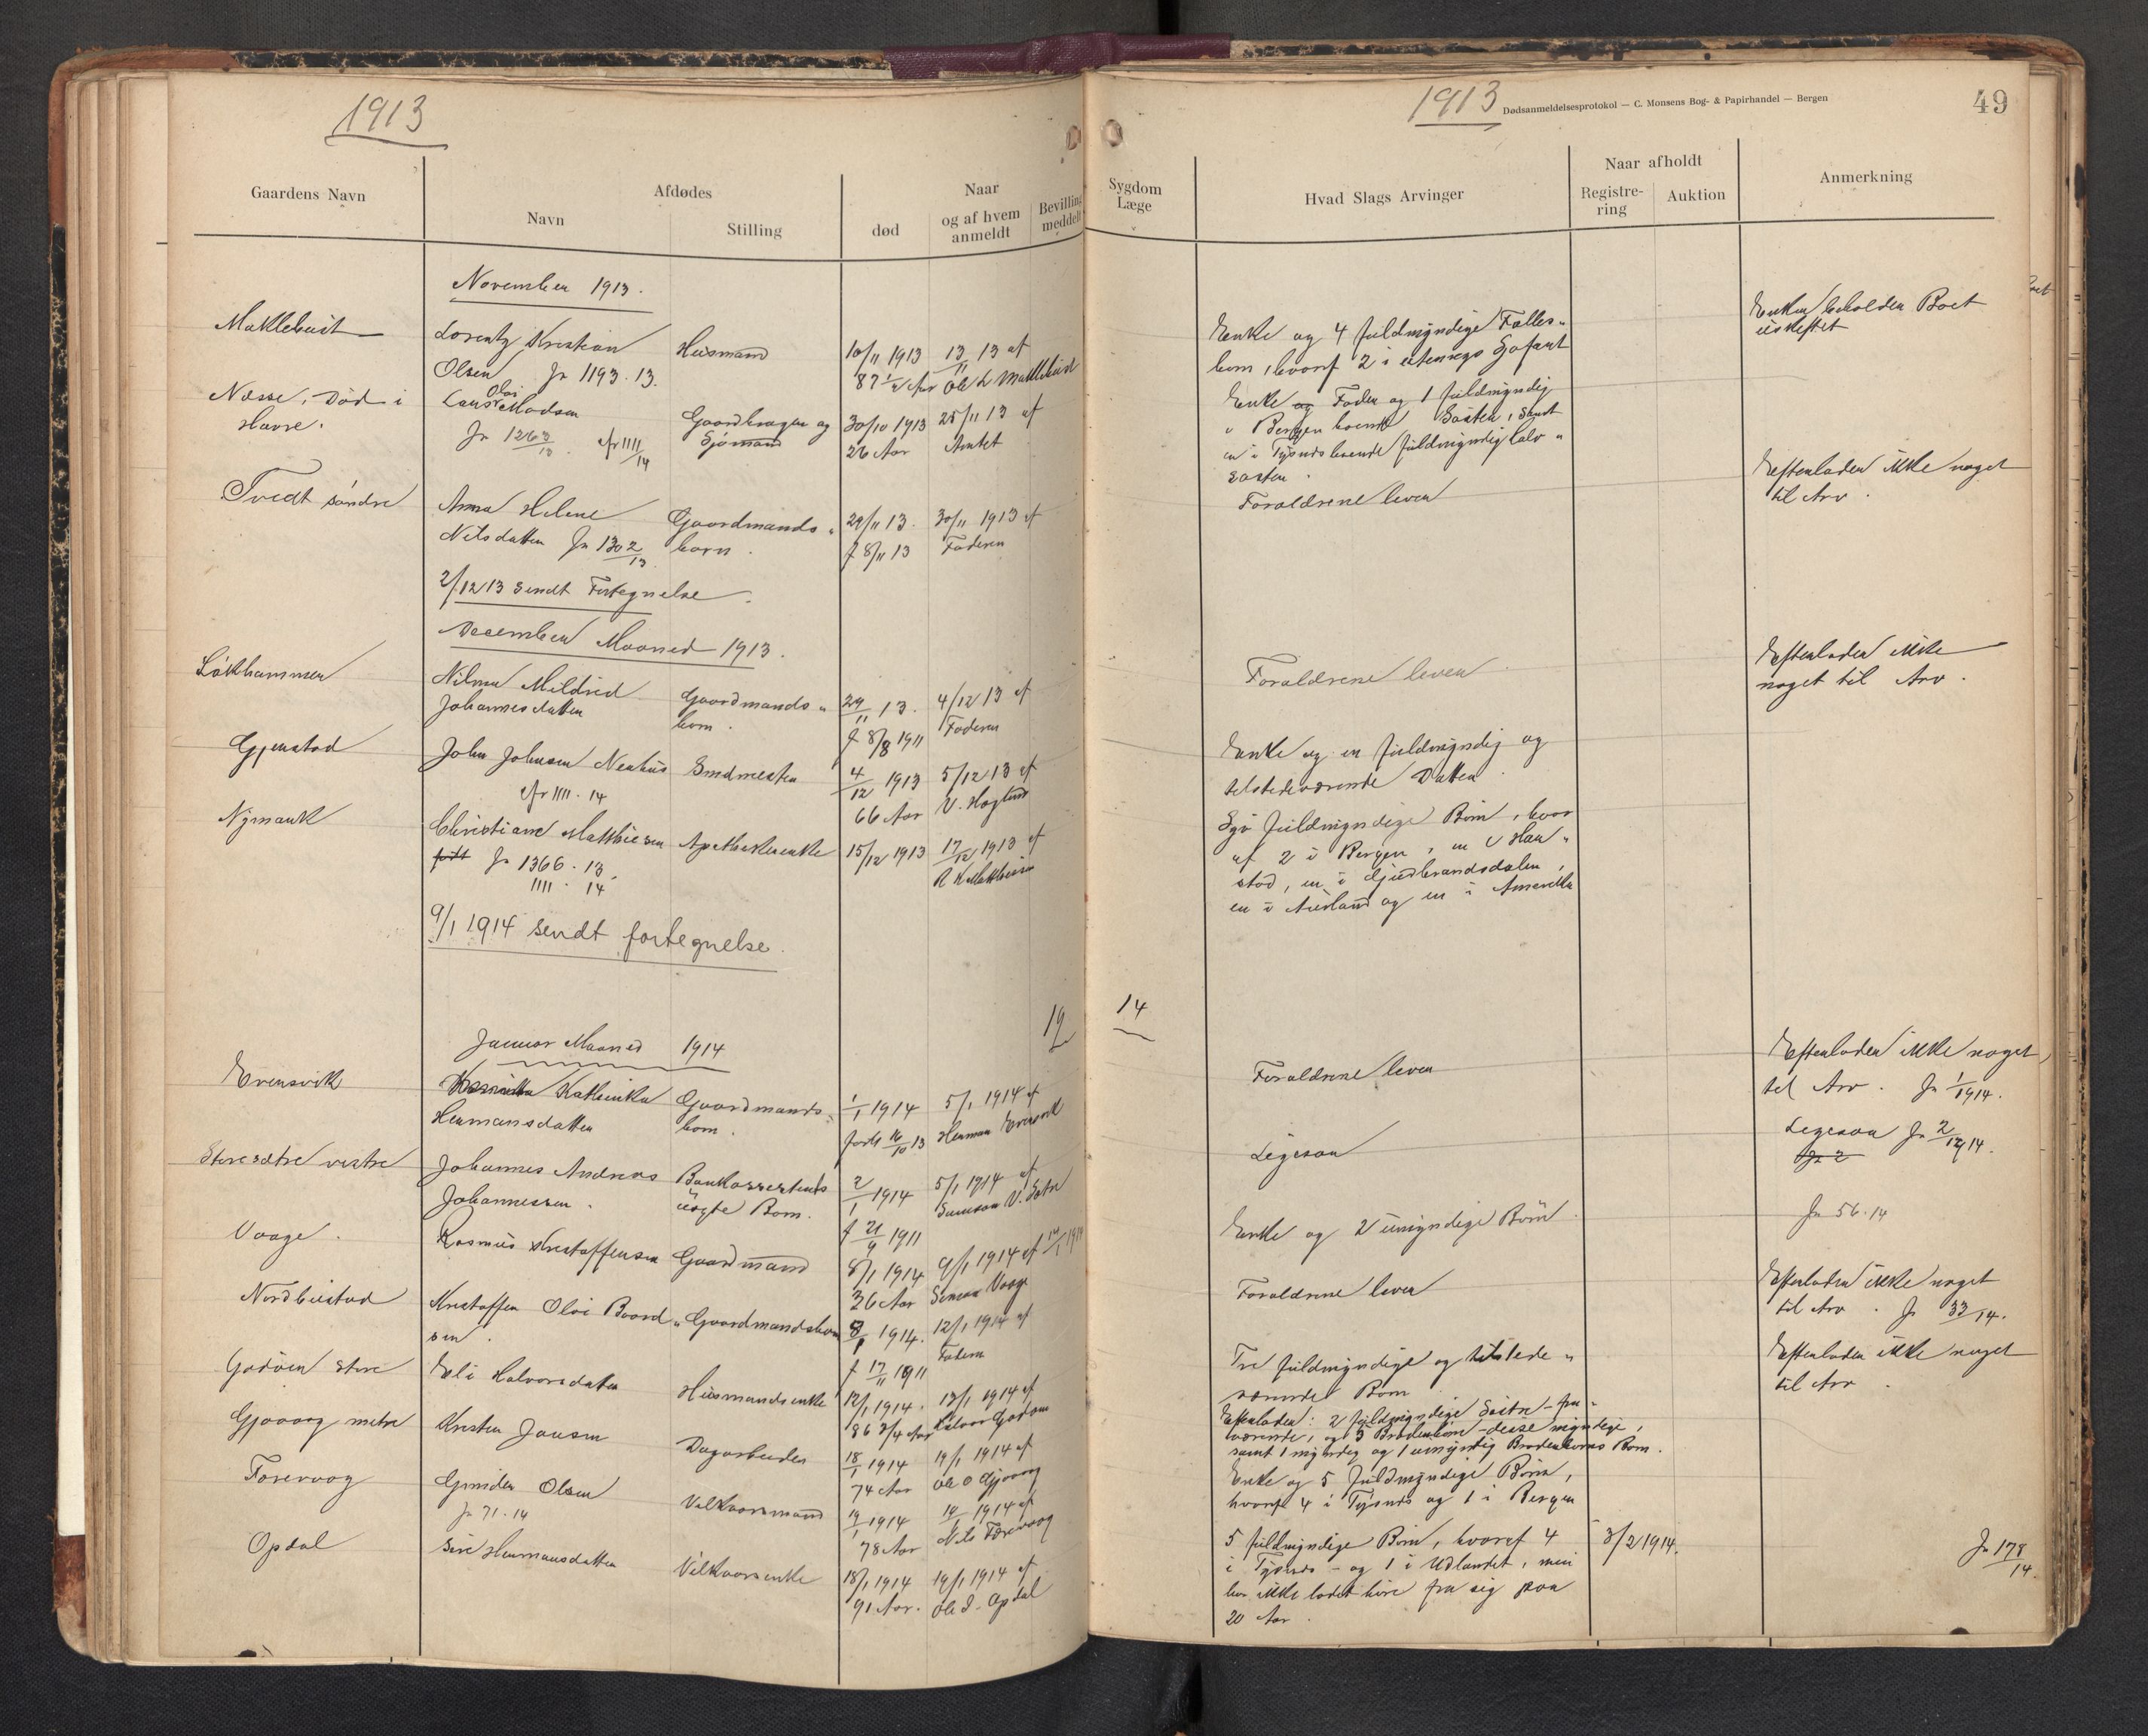 1913
Gaardens Navn
Afdødes
Navn
Stilling
Naar
død
og af hvem
anmeldt
Bevilling
meddelt
November 1913.
Maklebust
Lorentz Kristian
Olsen Jr 1193.13.
Husmand
10/11 1913
87 1/2 Aar
13/11 13 af
Ole L Maklebust
Næsse, Død i
Havre.
Olai
Madsen
Jr 1263/13. cfr 1111/14
Gaardbruger og
Sjømand
30/10 1913
26 Aar
25/11 13 af
Amtet
Tvedt søndre
Anna Helene
Nilsdatter Jr 1302/13.
Gaardmands
barn.
29/11 13.
f 8/11 13
30/11 1913 af
Faderen
2/12 13 sendt Fortegnelse.
December Maaned 1913.
Løkhammer
Nilma Mildrid
Johannesdatter
Gaardmands
barn.
29/11 13.
f 8/8 1911
4/12 13 af
Faderen
Gjerstad
John Johnsen Neuhus
cfr 1111.14
Smedmester
4/12 1913
66 Aar
5/12 13 af
V. Hoglund
Nymark
Christiane Matthiesen
født Jr 1366.13.
1111.14
Apothekerenke
15/12 1913
17/12 1913 af
R K Matthiesen
9/1 1914 sendt fortegnelse.
19
Januar Maaned 1914
Evensvik
Kathinka
Hermansdatter
Gaardmands
barn.
1/1 1914
født 16/10 13
5/1 1914 af
Herman Evensvik
Storesætre vestre
Johannes Andreas
Johannessen.
Bankassistents
uægte Barn.
2/1 1914
f 21/9 1911
5/1 1914 af
Samson V. Sætre
Vaage.
Rasmus Kristoffersen
Gaardmand
8/1 1914
36 Aar
9/1 1914 af
Simon Vaage
14/1 1914
Nordbustad
Kristoffer Olai Baard
sen.
Gaardmandsbarn
8/1 1914.
f 17/11 1911
12/1 1914 af
Faderen
Godøen store
Eli Halvorsdatter
Husmandsenke
12/1 1914.
86 3/4 Aar
13/1 1914 af
Halvor Godøen
Gjovaag metre
Kristen Jansen
Dagarbeider
18/1 1914
74 Aar
19/1 1914 af
Ole O Gjovaag
Færevaag
Olsen
Jr 71.14
Velkaarsmand
19/1 1914
78 Aar
1914 af
Nils Færevaag
Opdal
Siri Hermansdatter
Velkaarsenke
18/1 1914
91 Aar.
19/1 1914 af
Ole J. Opdal
1913
Dødsanmeldelsesprotokol — C. Monsens Bog- & Papirhandel — Bergen
49
Sygdom
Læge
Hvad Slags Arvinger
Naar afholdt
Registre-
ring
Auktion
Anmerkning
Enke og 4 fuldmyndige Fælles-
børn, hvoraf 2 i utenrigs Søfart
Enken beholder Boet
uskiftet
Enke og Fader og 1 fuldmyndig
i Bergen boende Søster, samt
en i Tysnes boende fuldmyndig halv-
søster.
Forældrene lever
Efterlader ikke noget
til Arv.
Forældrene lever
Efterlader ikke
noget til Arv.
Enke og en fuldmyndig og
tilstedeværende Datter.
Syv fuldmyndige Børn, hvor
af 2 i Bergen, en i Har-
stad, en i Gudbrandsdalen,
en i Aurland og en i Amerika
14
Forældrene lever
Efterlader ikke noget
til Arv. Jr 1/1914.
Ligesaa
Ligesaa Jr 2/1914.
Jr 2
Enke og 2 umyndige Børn.
Jr 56.14
Forældrene lever
Efterlader ikke noget
til Arv. Jr 33/14.
Tre fuldmyndige og tilstede-
værende Børn
Efterlader ikke noget
til Arv.
Efterlader: 2 fuldmyndige
værende, og 3 Broderbørn - disse myndige,
samt 1 myndig og 1 umyndig Broderbørns Børn.
Enke og 5 fuldmyndige Børn,
hvoraf 4 i Tysnes og 1 i Bergen
5 fuldmyndige Børn, hvoraf 4
i Tysnes - og 1 i Udlandet, men
har ikke ladet høre fra sig paa
20 Aar.
3/2 1914.
Jr 178/14.